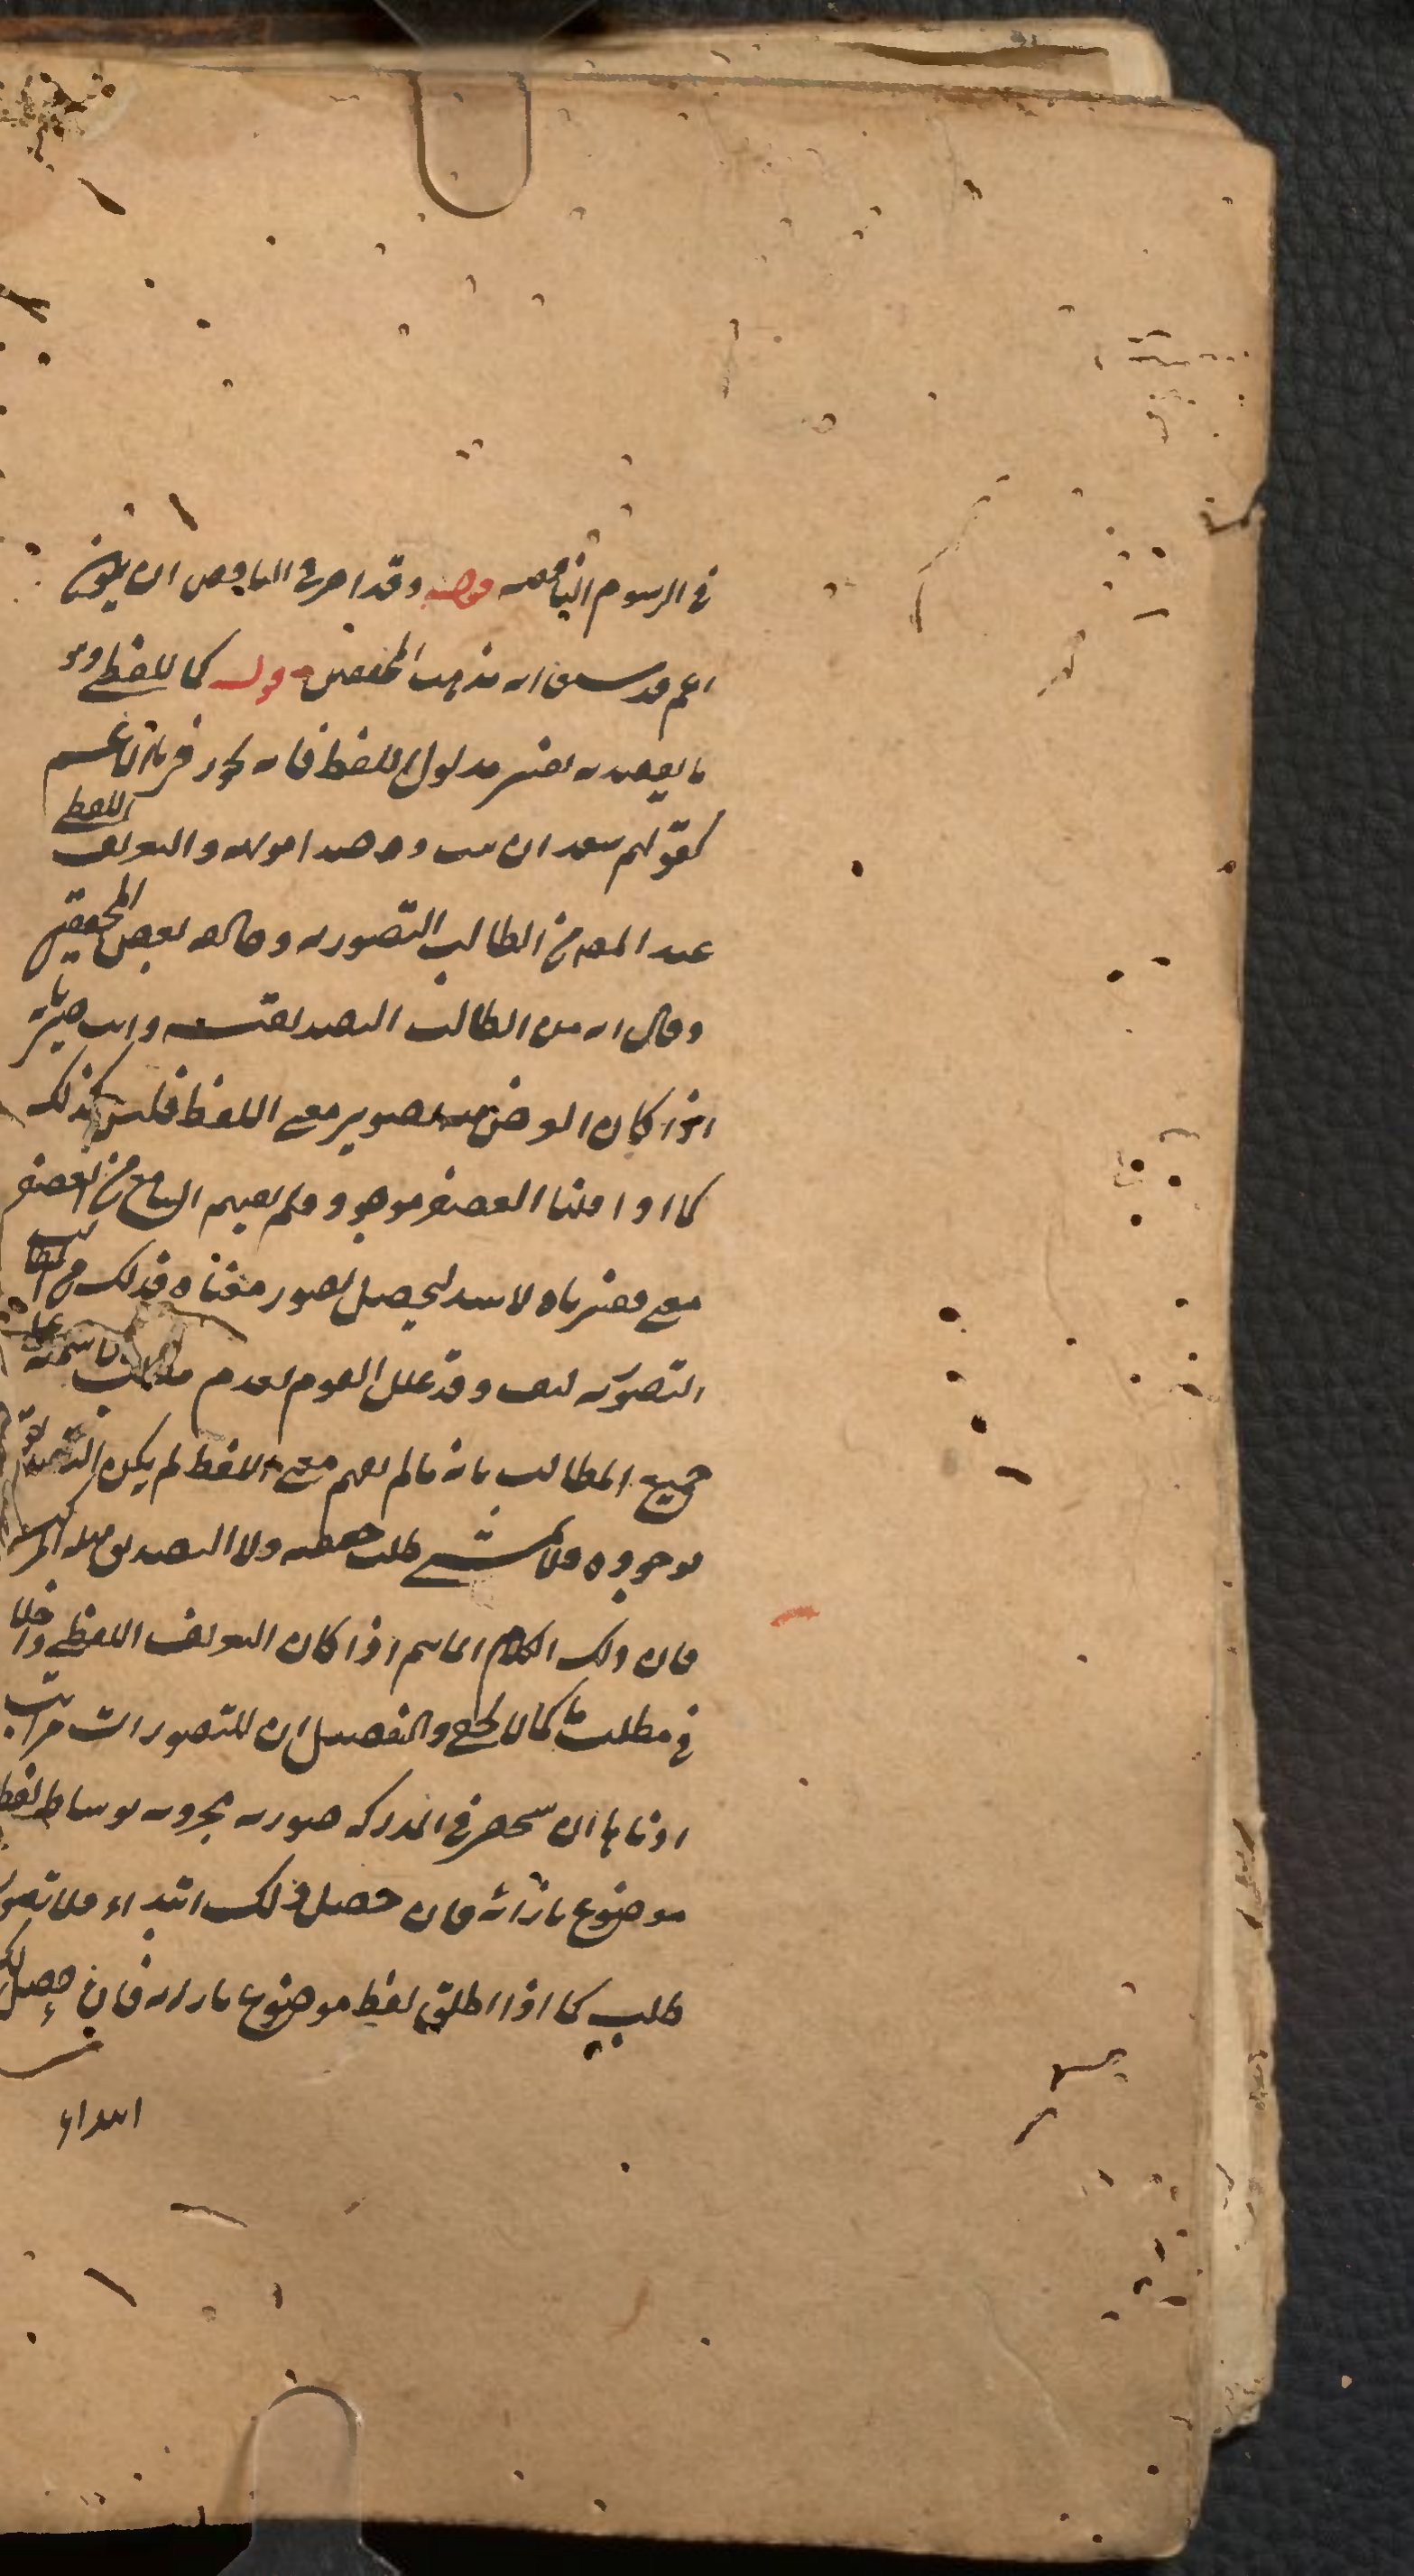 في الرسوم الناقصة قوله وقد اجيز في الناقص ان يكون
اعم قد سبق انه مذهب المحققين قوله كاللفظي وهو
ما يقصد به تفسير مدلول اللفظ فانه يجوز فيه بالاعم
كقولهم سعدان نبت والتعريف اللفظي
عند المص من المطالب التصورية وخالفه بعض المحققين
وقال انه من المطالب التصديقية وانت خبير بانه
اذا كان الغرض منه تصوير معنى اللفظ فليس كذلك
كما اذا قلنا الغضنفر موجود ولم يفهم السامع من الغضنفر
معنى ففسرناه بالاسد ليحصل تصور معناه فذلك من المطالب
التصورية كيف وقد علل القوم تقدم مطلب ما الاسمية على
جميع المطالب بانه ما لم يفهم معنى اللفظ لم يكن التصديق
بوجوده ولا طلب حقيقته ولا التصديق بهلية المركبة
فان ذلك الكلام انما يتم اذا كان التعريف اللفظي داخلا
في مطلب ما كما لا يخفى والتفصيل ان للتصورات مراتب
ادناها ان يستحضر في المدركة صورة مجردة بوساطة لفظ
موضوع بازائه فان حصل ذلك ابتداء فلا تصور
طلب كما اذا اطلق لفظ موضوع بازائه فان حصل
ابتداء